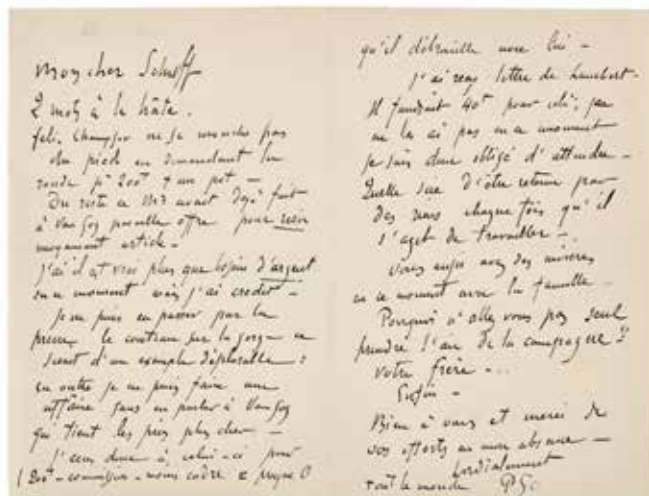 Mon cher Schuff
2 mots à la hâte.
Félix ne se mouche pas
du pied en demandant la
ronde pr 200f + un pot —
Du reste ce Mr avait déjà fait
à Van Gog pareille offre pour
moyennant article —
J'ai il est vrai plus que besoin d'argent
en ce moment mais j'ai crédit —
Je ne puis en passer par la
presse le couteau sur la gorge ce
serait d'un exemple déplorable :
en outre je ne puis faire une
affaire sans en parler à Van Gog
qui tient les prix plus cher —
J'eus donc à celui-ci pour
200f - commission - moins cadre =
qu'il débrouille avec lui —
J'ai reçu lettre de
Il faudrait 40f pour cela, j'en
ne les ai pas en ce moment
je suis donc obligé d'attendre —
Quelle scie d'être retenu par
des riens chaque fois qu'il
s'agit de travailler —
Vous aussi avez des misères
en ce moment avec la famille —
Pourquoi n'allez vous pas seul
prendre l'air de la campagne ?
votre frère ...
Enfin —
Bien à vous et merci de
vos efforts en mon absence —
Cordialement
tout le monde P Go